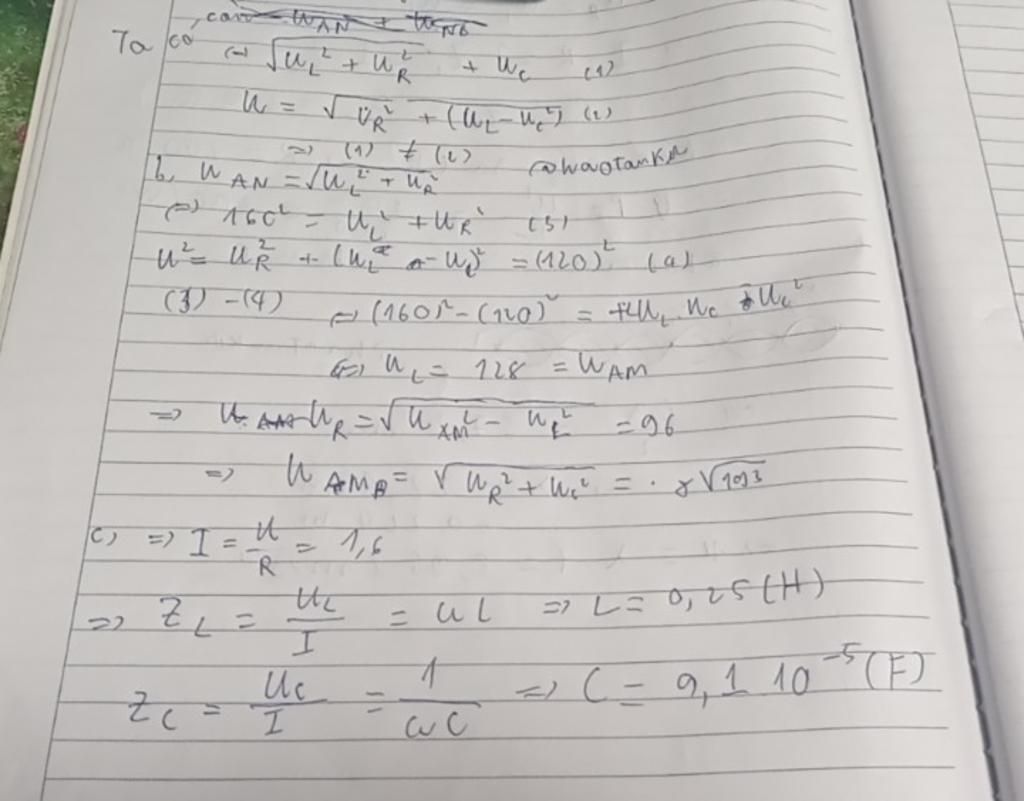 Ta có
⇔ √(U_L² + U_R²) + U_C (1)
U = √(U_R² + (U_L - U_C²)) (2)
⇒ (1) ≠ (2)
b, U_AN = √(U_L² + U_R²)
⇔ 160² = U_L² + U_R² (3)
U² = U_R² + (U_L - U_C)² = (120)² (4)
(3) - (4) ⇔ (160)² - (120)² = U_L U_C U_C²
⇔ U_L = 128 = U_AM
⇒ U_R = √(U_AM² - U_L²) = 96
⇒ U_MB = √(U_R² + U_C²) = 8√193
c, ⇒ I = U/R = 1,6
⇒ Z_L = U_L/I = ωL ⇒ L = 0,25 (H)
Z_C = U_C/I = 1/ωC ⇒ C = 9,1 10⁻⁵ (F)